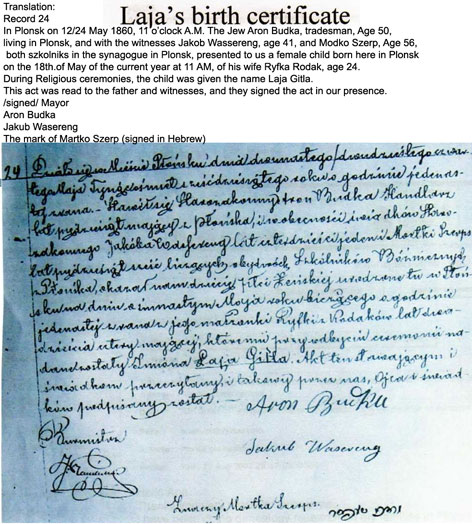 Translation:
Laja's birth certificate
Record 24
In Plonsk on 12/24 May 1860, 11 o'clock A.M. The Jew Aron Budka, tradesman, Age 50,
living in Plonsk, and with the witnesses Jakob Wassereng, age 41, and Modko Szerp, Age 56,
both szkolniks in the synagogue in Plonsk, presented to us a female child born here in Plonsk
on the 18th.of May of the current year at 11 AM, of his wife Ryfka Rodak, age 24.
During Religious ceremonies, the child was given the name Laja Gitla.
This act was read to the father and witnesses, and they signed the act in our presence.
/signed/ Mayor
Aron Budka
Jakub Wasereng
The mark of Martko Szerp (signed in Hebrew)
24 Działo się w Mieście Płońsku dnia dwunastego/dwudziestego czwar-
tego Maja Tysiąc ośmset sześćdziesiątego roku o godzinie jedenas-
tej z rana. Stawił się Starozakonny Aron Budka Handlarz
lat pięćdziesiąt mający z Płońska, i w obecności świadków Staro-
zakonnego Jakóba Wasereng lat czterdzieści jeden i Mortki Szerps
lat pięćdziesiąt sześć liczących obydwóch Szkólników Bóżniczych
z Płońska, okazał nam dziecię płci żeńskiej urodzone tu w Płoń-
sku w dniu ośmnastym Maja roku bieżącego o godzinie
jedenastej z rana z jego małżonki Ryfki z Rodaków lat dwa-
dzieścia cztery mającej, któremu przy odbyciu ceremonii na-
dane zostały Imiona Laja Gitla. Akt ten stawającym i
świadkom przeczytany i takowy przez nas, Ojca i świad-
ków podpisany został.
Aron Budka
Burmistrz
Jakub Wasereng
Mortka Szerps